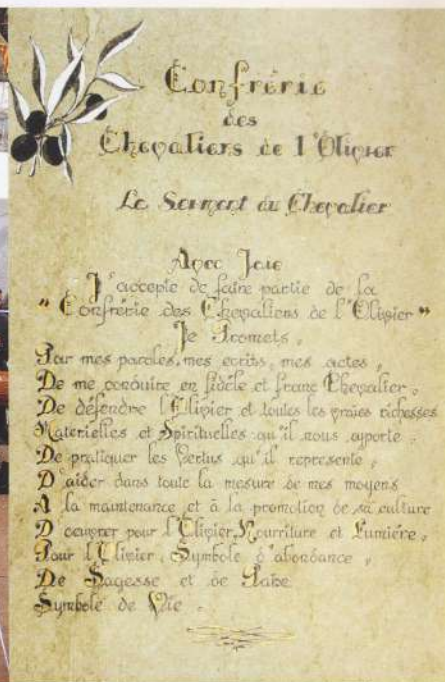 Confrérie
des
Chevaliers de l'Olivier
Le Serment du Chevalier
Avec Joie
J'accepte de faire partie de la
"Confrérie des Chevaliers de l'Olivier"
Je Promets,
Par mes paroles, mes ecrits, mes actes,
De me conduire en fidèle et franc Chevalier,
De défendre l'Olivier et toutes les vraies richesses
Materielles et Spirituelles qu'il nous apporte,
De pratiquer les Vertus qu'il represente,
D'aider dans toute la mesure de mes moyens
A la maintenance et à la promotion de sa culture
D'oeuvrer pour l'Olivier, Nourriture et Lumière,
Pour l'Olivier, Symbole d'abondance,
De Sagesse et de Paix
Symbole de Vie.